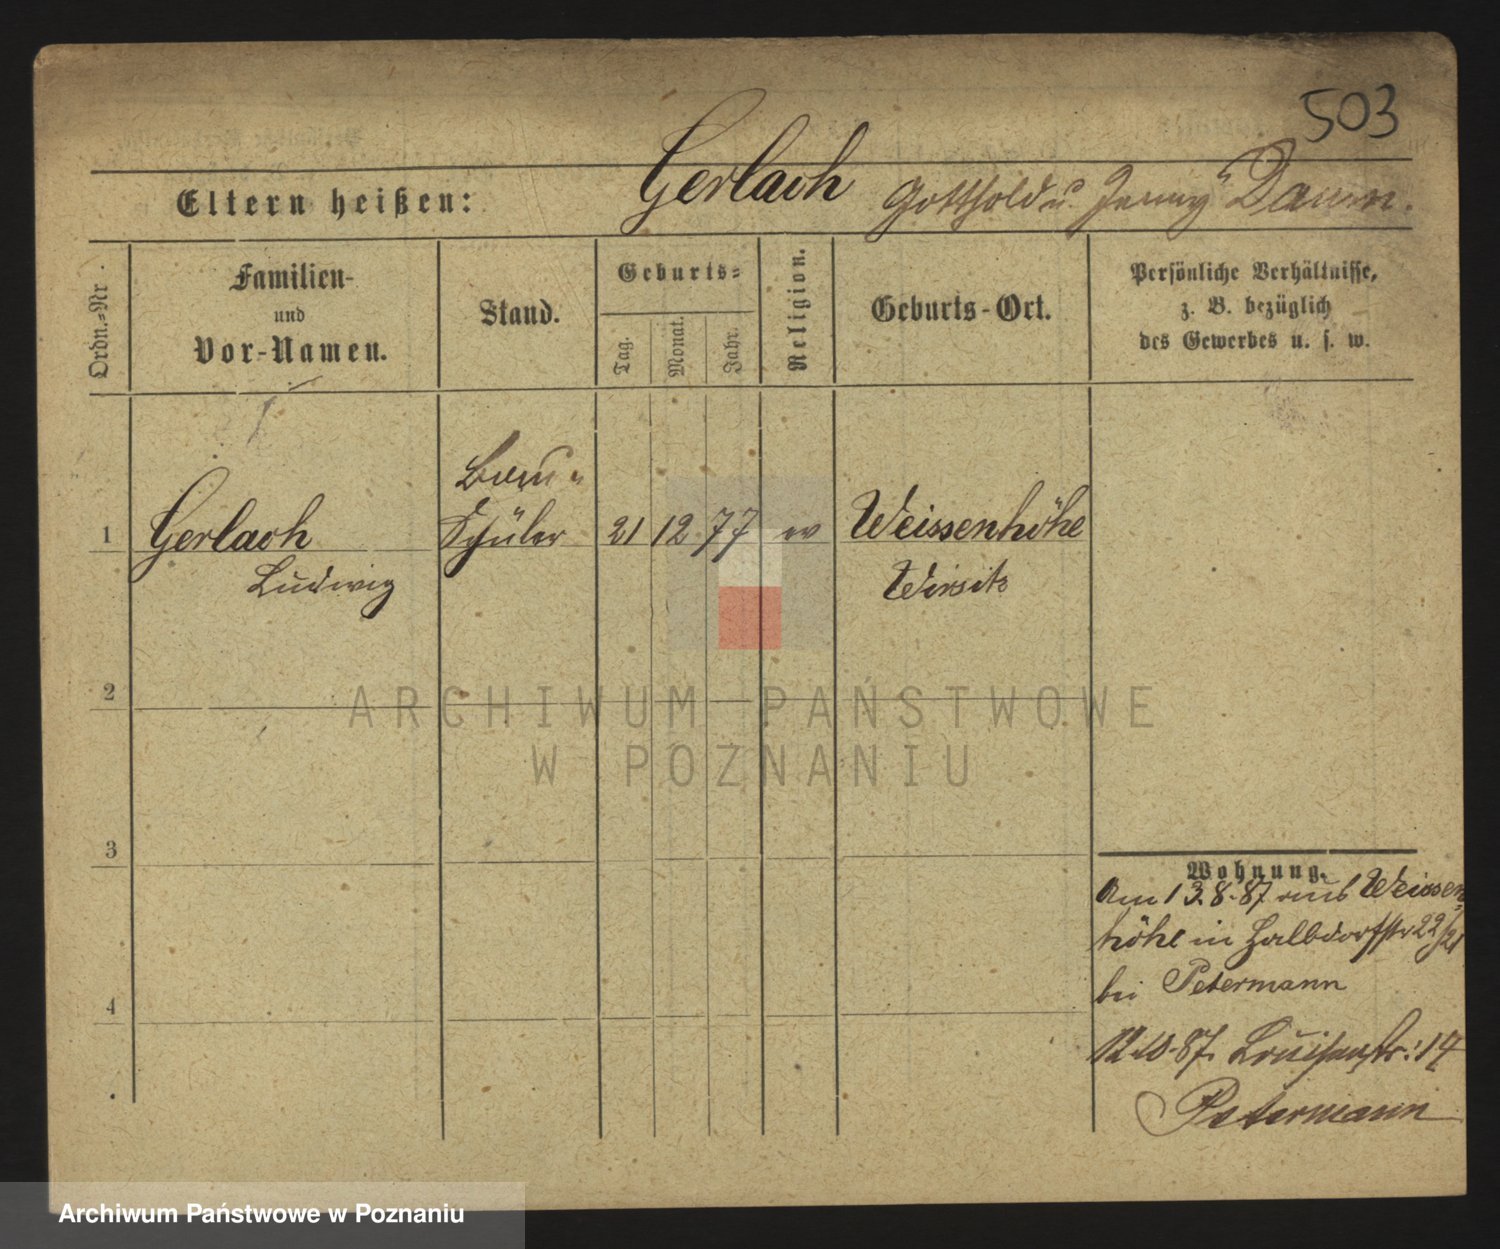 503
Eltern heißen: Gerlach Gotthold u. Jenny Damm.
Ordn.-Nr.
Familien-
und
Vor-Namen.
Stand.
Geburts-
Tag.
Monat.
Jahr.
Religion.
Geburts-Ort.
Persönliche Verhältnisse,
z. B. bezüglich
des Gewerbes u. s. w.
1 Gerlach
Ludwig
Schüler
21 12 77 ev
Weissenhöhe
Wirsitz
2
3
4
Wohnung.
Am 13.8.87 aus Weissen=
höhe in Halbdorfstr 22/21
bei Petermann
87. Louisenstr: 14
Petermann
ARCHIWUM PAŃSTWOWE
W POZNANIU
Archiwum Państwowe w Poznaniu